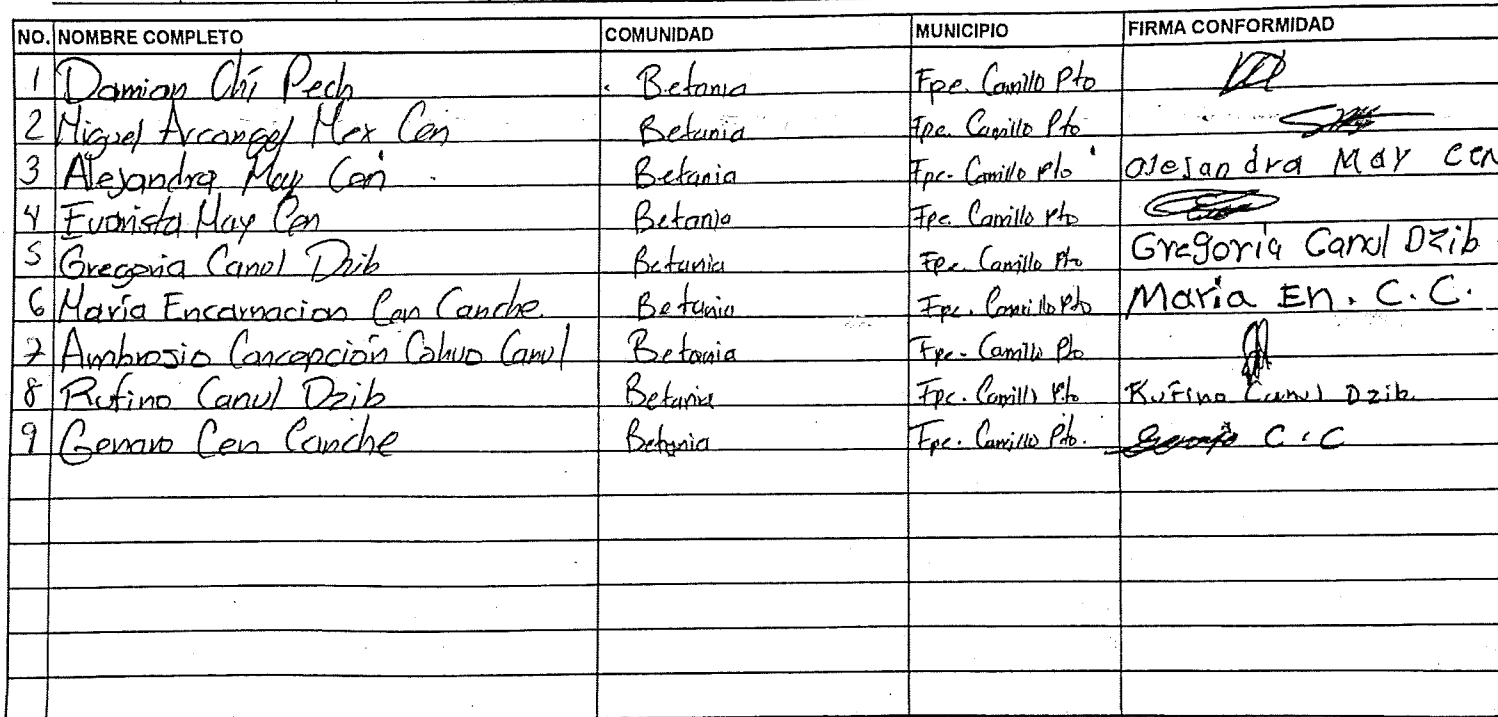 NO. NOMBRE COMPLETO COMUNIDAD MUNICIPIO FIRMA CONFORMIDAD
1 Damian Chí Pech Betania Fpe. Carrillo Pto
2 Miguel Arcangel Mex Cen Betania Fpe. Carrillo Pto
3 Alejandra May Cen Betania Fpe. Carrillo Pto alesandra May cen
4 Evarista May Cen Betania Fpe. Carrillo Pto
5 Gregoria Canul Dzib Betania Fpe. Carrillo Pto Gregoria Canul Dzib
6 María Encarnacion Cen Canche Betania Fpe. Carrillo Pto Maria En. C. C.
7 Ambrosio Concepción Cohuo Canul Betania Fpe. Carrillo Pto
8 Rufino Canul Dzib Betania Fpe. Carrillo Pto Rufino Canul Dzib
9 Genaro Cen Canche Betania Fpe. Carrillo Pto. C . C